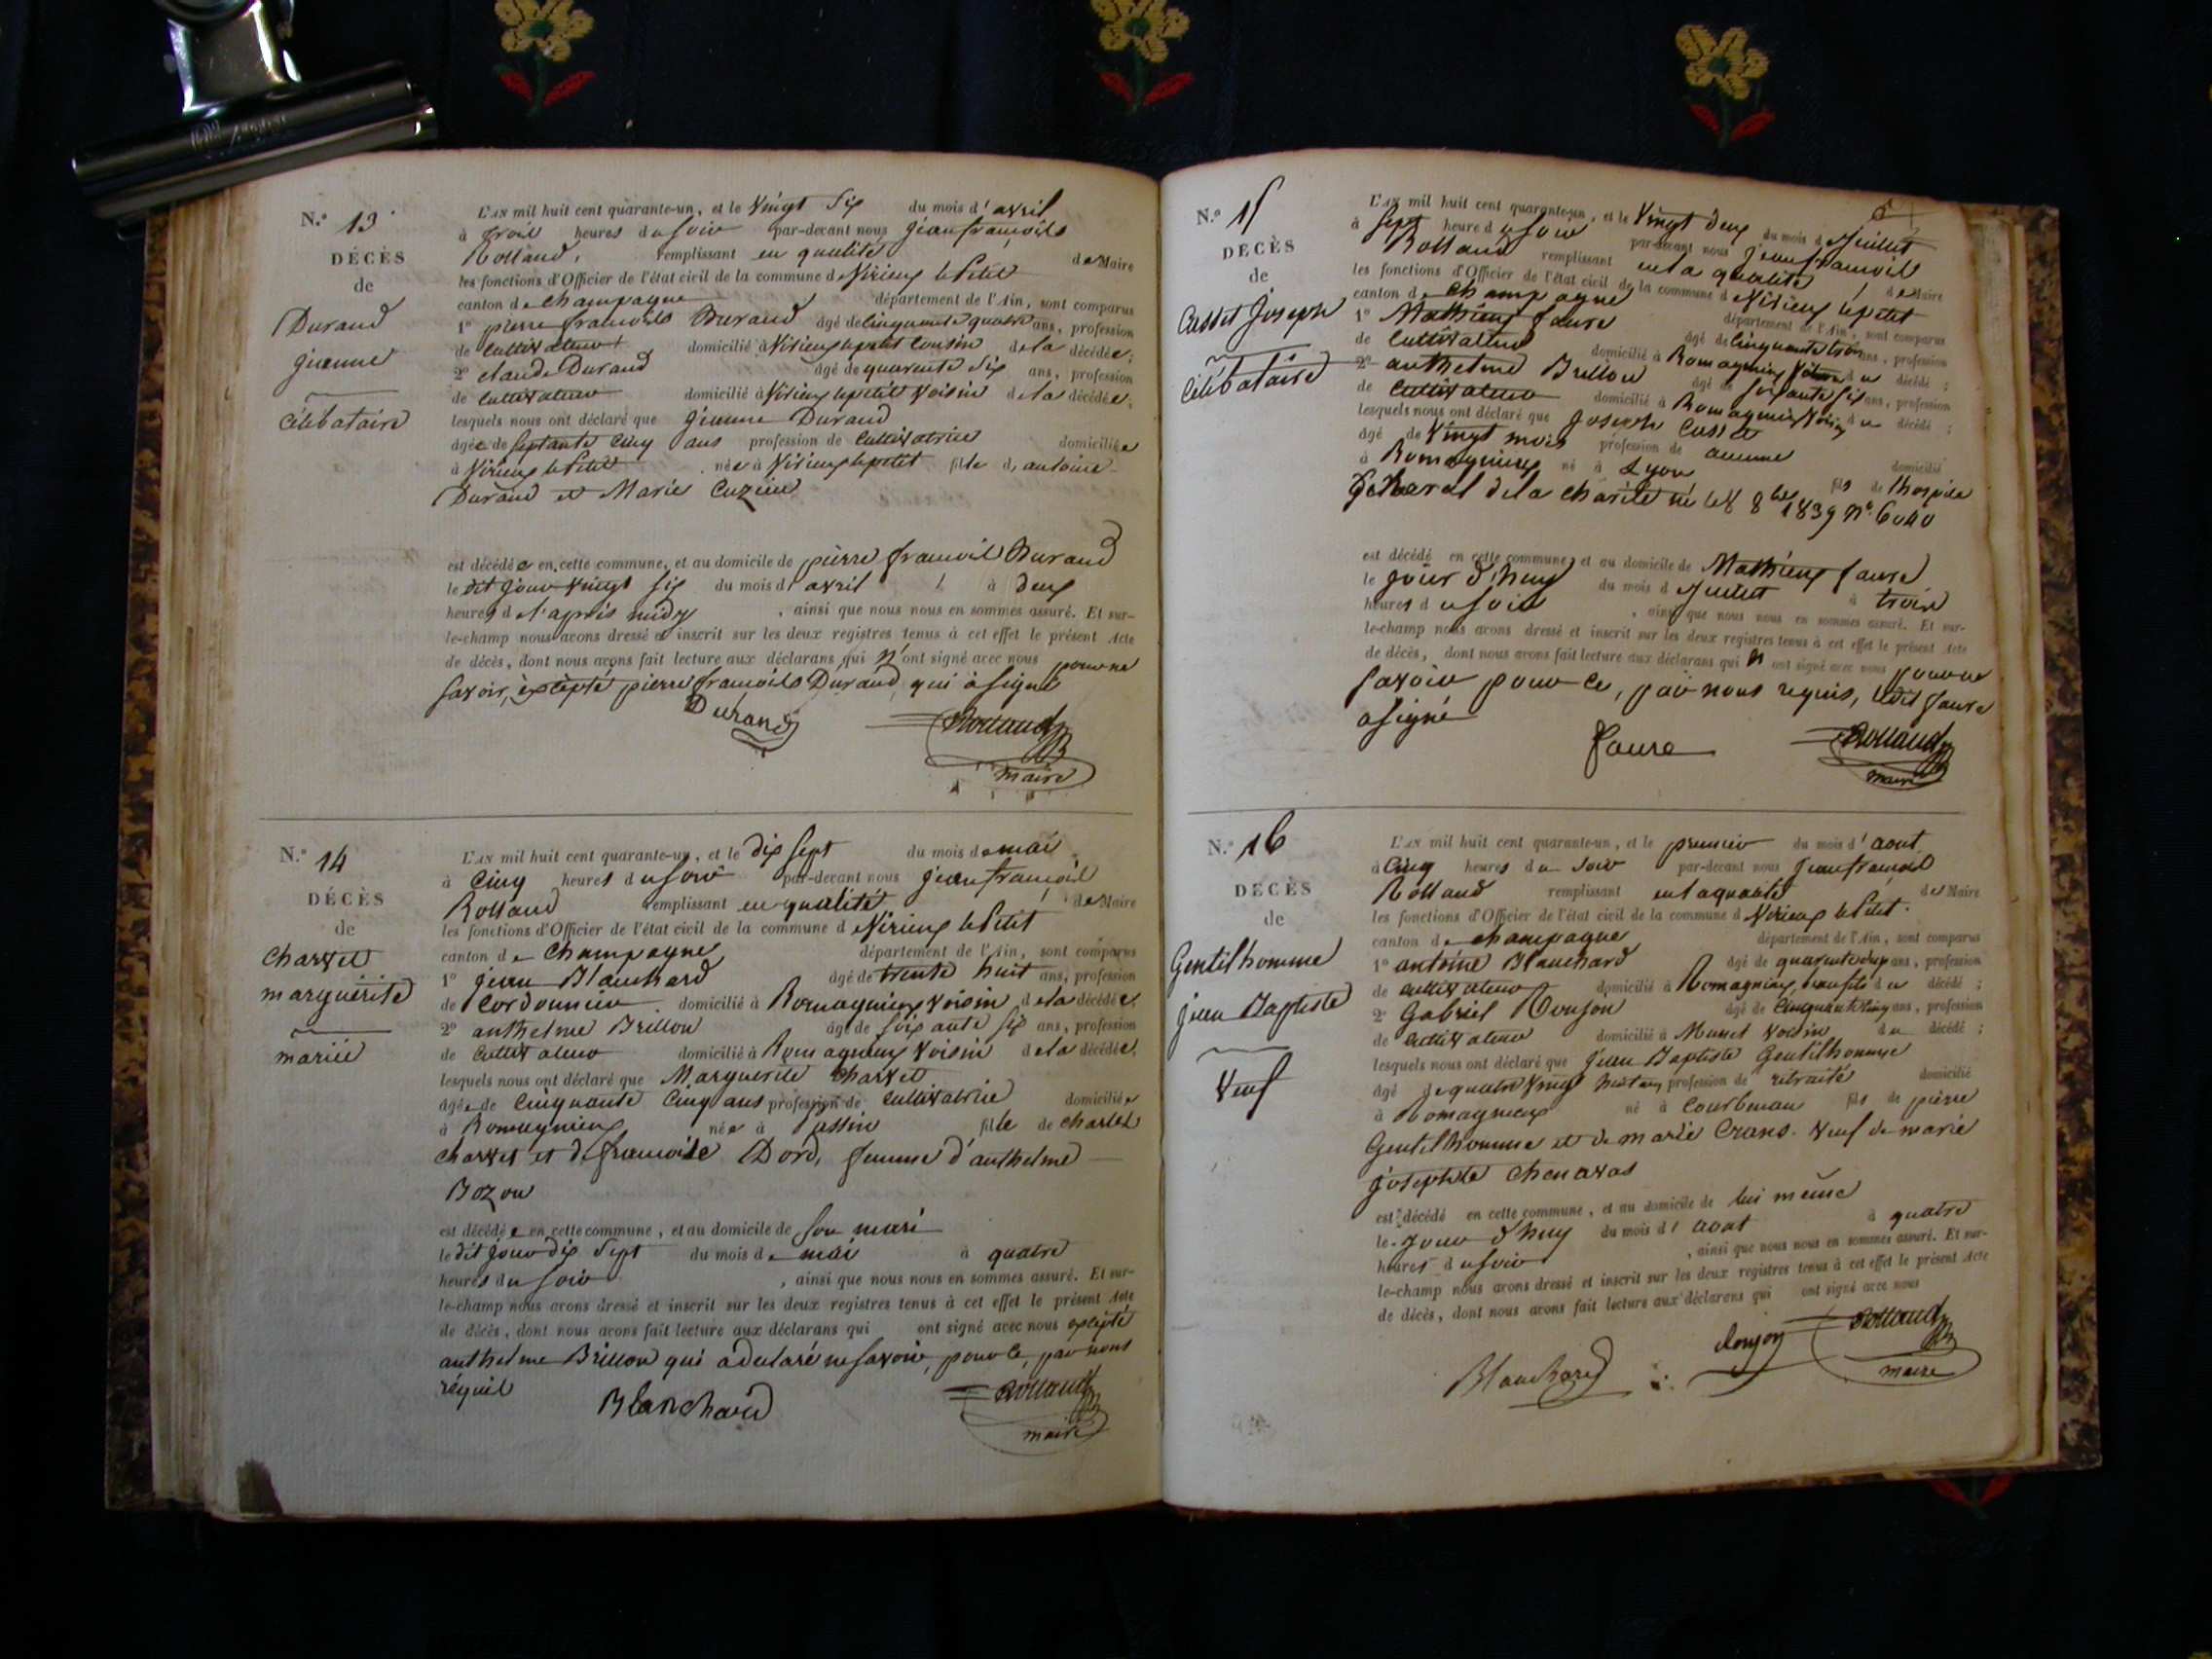 N.º 13
DÉCÈS
de
Durand
jeanne
célibataire
L'AN mil huit cent quarante-un, et le vingt six du mois d'avril
à trois heures du soir par-devant nous jean françois
Rolland, remplissant en qualité de Maire
les fonctions d'Officier de l'état civil de la commune de Virieux le Petit
canton de champagne département de l'Ain, sont comparus
1º pierre françois Durand âgé de cinquante quatre ans, profession
de cultivateur domicilié à Virieux le petit cousin de la décédée;
2º claude Durand âgé de quarante six ans, profession
de cultivateur domicilié à Virieux le petit voisin de la décédée;
lesquels nous ont déclaré que jeanne Durand
âgée de septante cinq ans profession de cultivatrice domiciliée
à Virieux le Petit née à Virieux le petit fille d'antoine
Durand et Marie Cuzin
est décédée en cette commune, et au domicile de pierre françois Durand
le dit jour vingt six du mois d'avril à deux
heures de l'après midy, ainsi que nous nous en sommes assuré. Et sur-
le-champ nous avons dressé et inscrit sur les deux registres tenus à cet effet le présent Acte
de décès, dont nous avons fait lecture aux déclarans qui n'ont signé avec nous pour ne
savoir, éxcèpté pierre françois Durand qui à signé
Durand Rolland
maire
N.º 14
DÉCÈS
de
charvet
marguerite
mariée
L'AN mil huit cent quarante-un, et le dix sept du mois de mai
à cinq heures du soir par-devant nous jean françois
Rolland remplissant en qualité de Maire
les fonctions d'Officier de l'état civil de la commune de Virieux le Petit
canton de champagne département de l'Ain, sont comparus
1º jean Blanchard âgé de trente huit ans, profession
de cordonnier domicilié à Romagnieux voisin de la décédée
2º anthelme Brillon âgé de soix ante six ans, profession
de cultivateur domicilié à Romagnieux voisin de la décédée.
lesquels nous ont déclaré que Marguerite charvet
âgée de cinquante cinq ans profession de cultivatrice domiciliée
à Romagnieux née à Passin fille de charles
charvet et de françoise Dord, femme d'anthelme
Bozon
est décédée en cette commune, et au domicile de son mari
le dit jour dix sept du mois de mai à quatre
heures du soir, ainsi que nous nous en sommes assuré. Et sur-
le-champ nous avons dressé et inscrit sur les deux registres tenus à cet effet le présent Acte
de décès, dont nous avons fait lecture aux déclarans qui ont signé avec nous excépté
anthelme Brillon qui a déclaré ne savoir, pour ce, par nous
réquis
Blanchard Rolland
maire
N.º 15
DÉCÈS
de
Cusset Joseph
célibataire
L'AN mil huit cent quarante-un, et le vingt deux du mois de Juillet
à sept heure du soir par-devant nous jean françois
Rolland remplissant en la qualité de Maire
les fonctions d'Officier de l'état civil de la commune de Virieux le petit
canton de champagne département de l'Ain, sont comparus
1º Mathieux faure âgé de cinquante trois ans, profession
de cultivateur domicilié à Romagnieux voisin du décédé;
2º anthelme Brillon âgé de soixante six ans, profession
de cultivateur domicilié à Romagnieux voisin du décédé;
lesquels nous ont déclaré que Joseph Cusset
âgé de vingt mois profession de aucune domicilié
à Romagnieux né à Lyon fils de lhospice
général de la charité né le 8 8bre 1839 nº 6040
est décédé en cette commune, et au domicile de Mathieux faure
le jour d'huy du mois de Juillet à trois
heures du soir, ainsi que nous nous en sommes assuré. Et sur-
le-champ nous avons dressé et inscrit sur les deux registres tenus à cet effet le présent Acte
de décès, dont nous avons fait lecture aux déclarans qui n'ont signé avec nous pour ne
savoir pour ce, par nous requis, ledit faure
a signé
faure Rolland
maire
N.º 16
DÉCÈS
de
Gentilhomme
jean Baptiste
veuf
L'AN mil huit cent quarante-un, et le premier du mois d'aout
à cinq heures du soir par-devant nous jean françois
Rolland remplissant en la qualité de Maire
les fonctions d'Officier de l'état civil de la commune de Virieux le Petit.
canton de champagne département de l'Ain, sont comparus
1º antoine Blanchard âgé de quarante ans, profession
de cultivateur domicilié à Romagnieux beaufils du décédé;
2º Gabriel Donjon âgé de cinquante cinq ans, profession
de cultivateur domicilié à Munet voisin du décédé;
lesquels nous ont déclaré que jean Baptiste Gentilhomme
âgé de quatre vingt huit ans profession de retraité domicilié
à Romagnieux né à Courbouzon fils de pierre
Gentilhomme et de marie Crans. veuf de marie
josephte chenavas
est décédé en cette commune, et au domicile de lui même
le jour d'huy du mois d'aout à quatre
heures du soir, ainsi que nous nous en sommes assuré. Et sur-
le-champ nous avons dressé et inscrit sur les deux registres tenus à cet effet le présent Acte
de décès, dont nous avons fait lecture aux déclarans qui ont signé avec nous
Blanchard donjon Rolland
maire